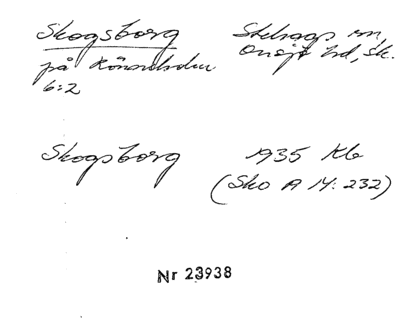 Skogsborg Stehags sn,
på Rönneholm Onsjö hd, Sk.
6:2
Skogsborg 1935 Kb
(Sko A 14: 232)
Nr 23938